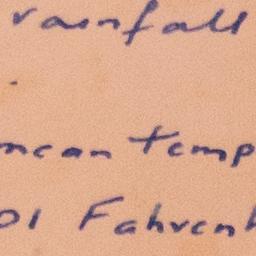 rainfall
mean temp
01 Fahrenh